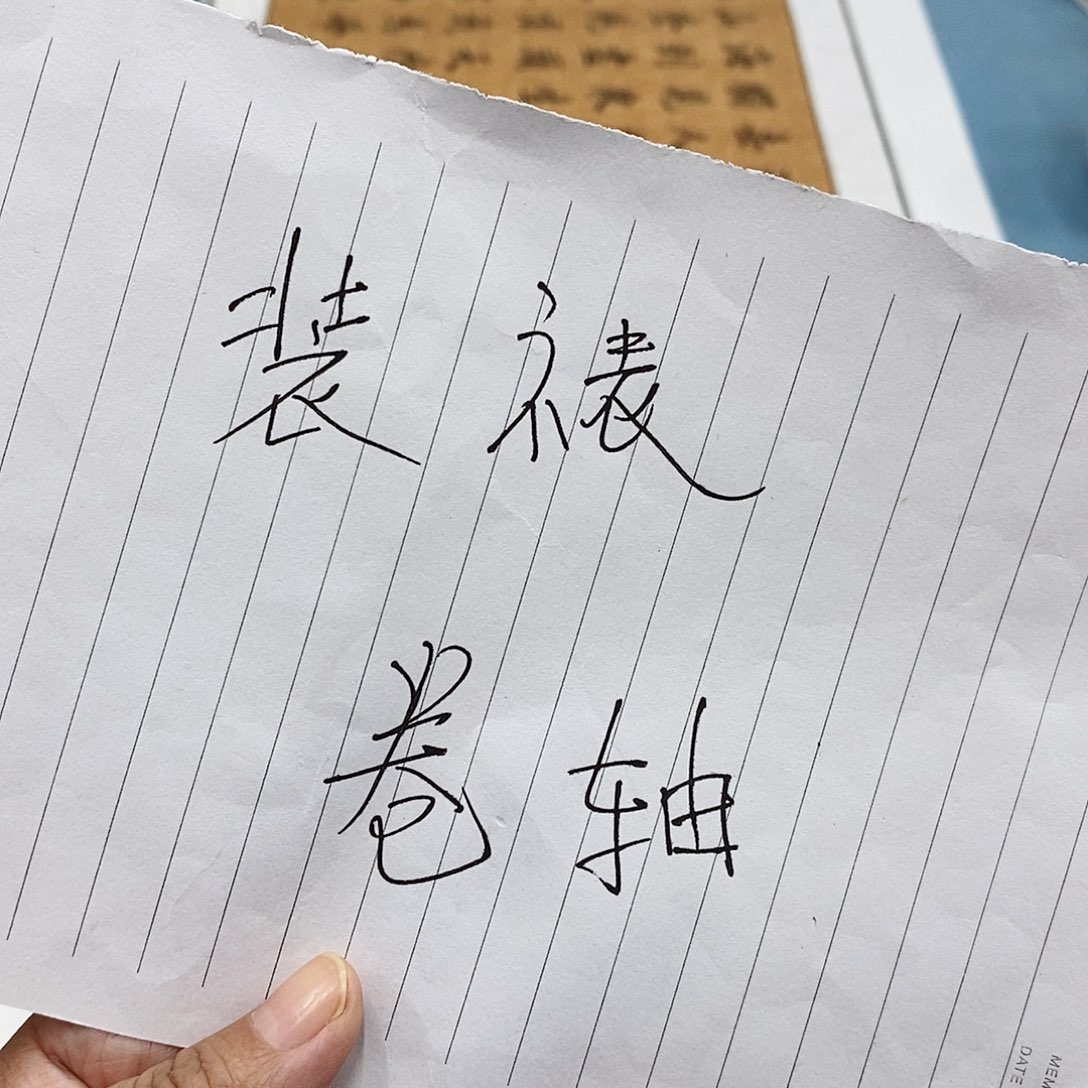 装裱
卷轴
DATE